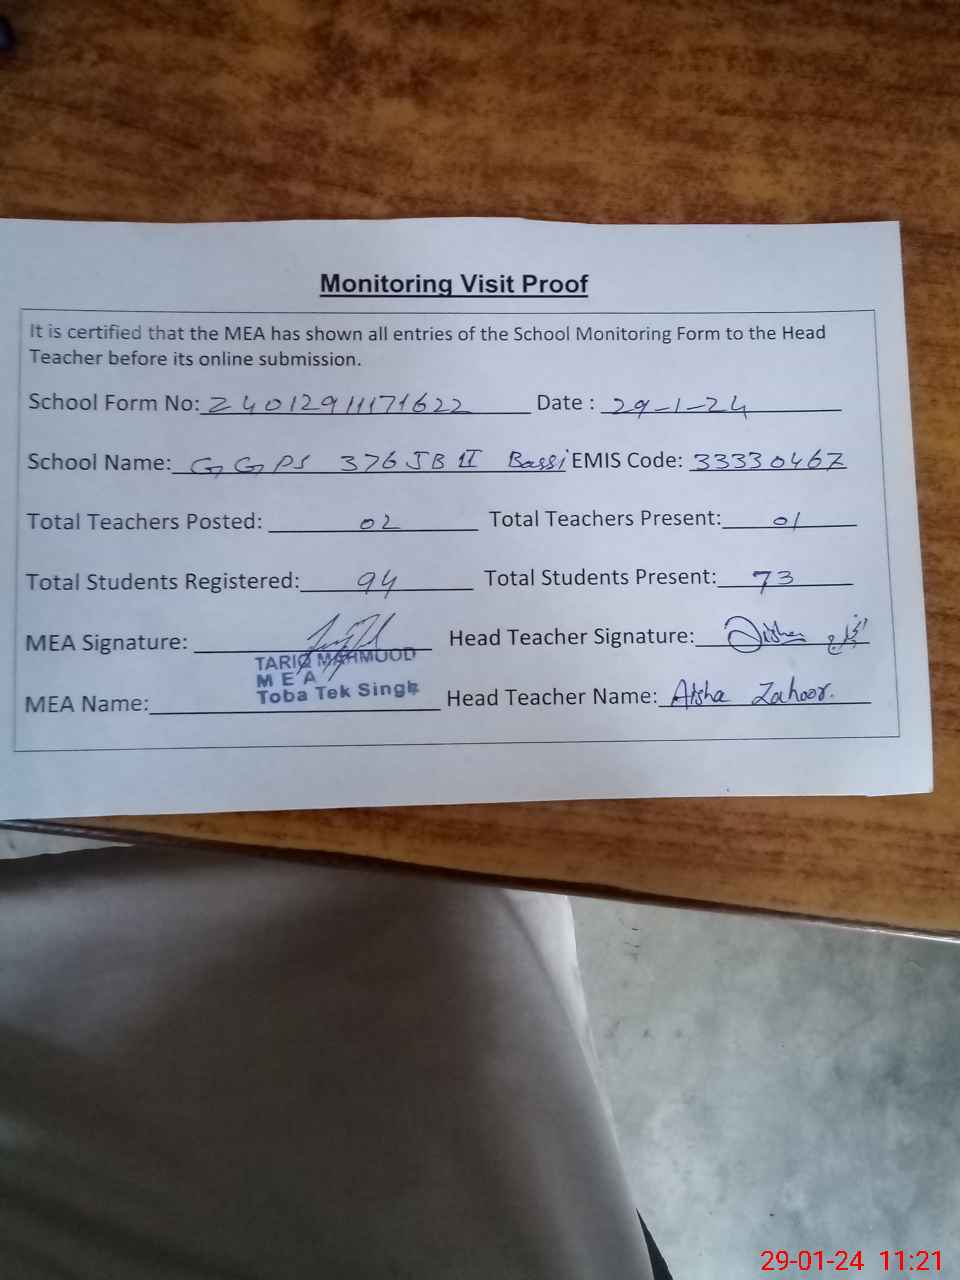 Monitoring Visit Proof
It is certified that the MEA has shown all entries of the School Monitoring Form to the Head
Teacher before its online submission.
School Form No: 24012911171622 Date : 29-1-24
School Name: GGPS 376 JB II Bassi EMIS Code: 33330467
Total Teachers Posted: 02 Total Teachers Present: 01
Total Students Registered: 94 Total Students Present: 73
MEA Signature: Head Teacher Signature: Aisha انچارج
TARIQ MAHMOOD
M E A
Toba Tek Singh
MEA Name: Head Teacher Name: Aisha Zahoor.
29-01-24 11:21